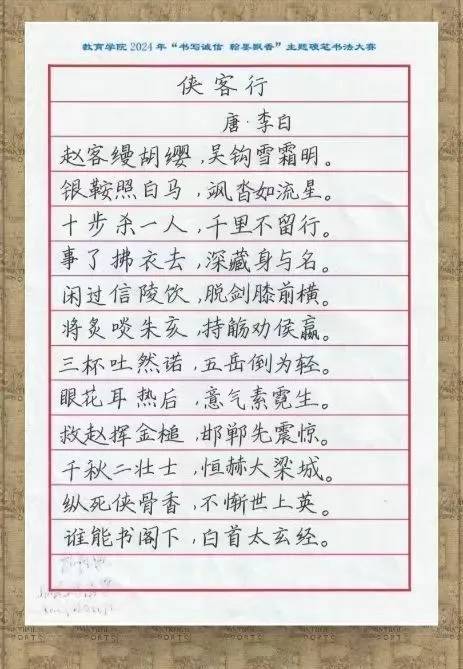 教育学院2024年“书写诚信 翰墨飘香”主题硬笔书法大赛
侠客行
唐·李白
赵客缦胡缨,吴钩雪霜明。
银鞍照白马,飒沓如流星。
十步杀一人,千里不留行。
事了拂衣去,深藏身与名。
闲过信陵饮,脱剑膝前横。
将炙啖朱亥,持觞劝侯嬴。
三杯吐然诺,五岳倒为轻。
眼花耳热后,意气素霓生。
救赵挥金槌,邯郸先震惊。
千秋二壮士,烜赫大梁城。
纵死侠骨香,不惭世上英。
谁能书阁下,白首太玄经。